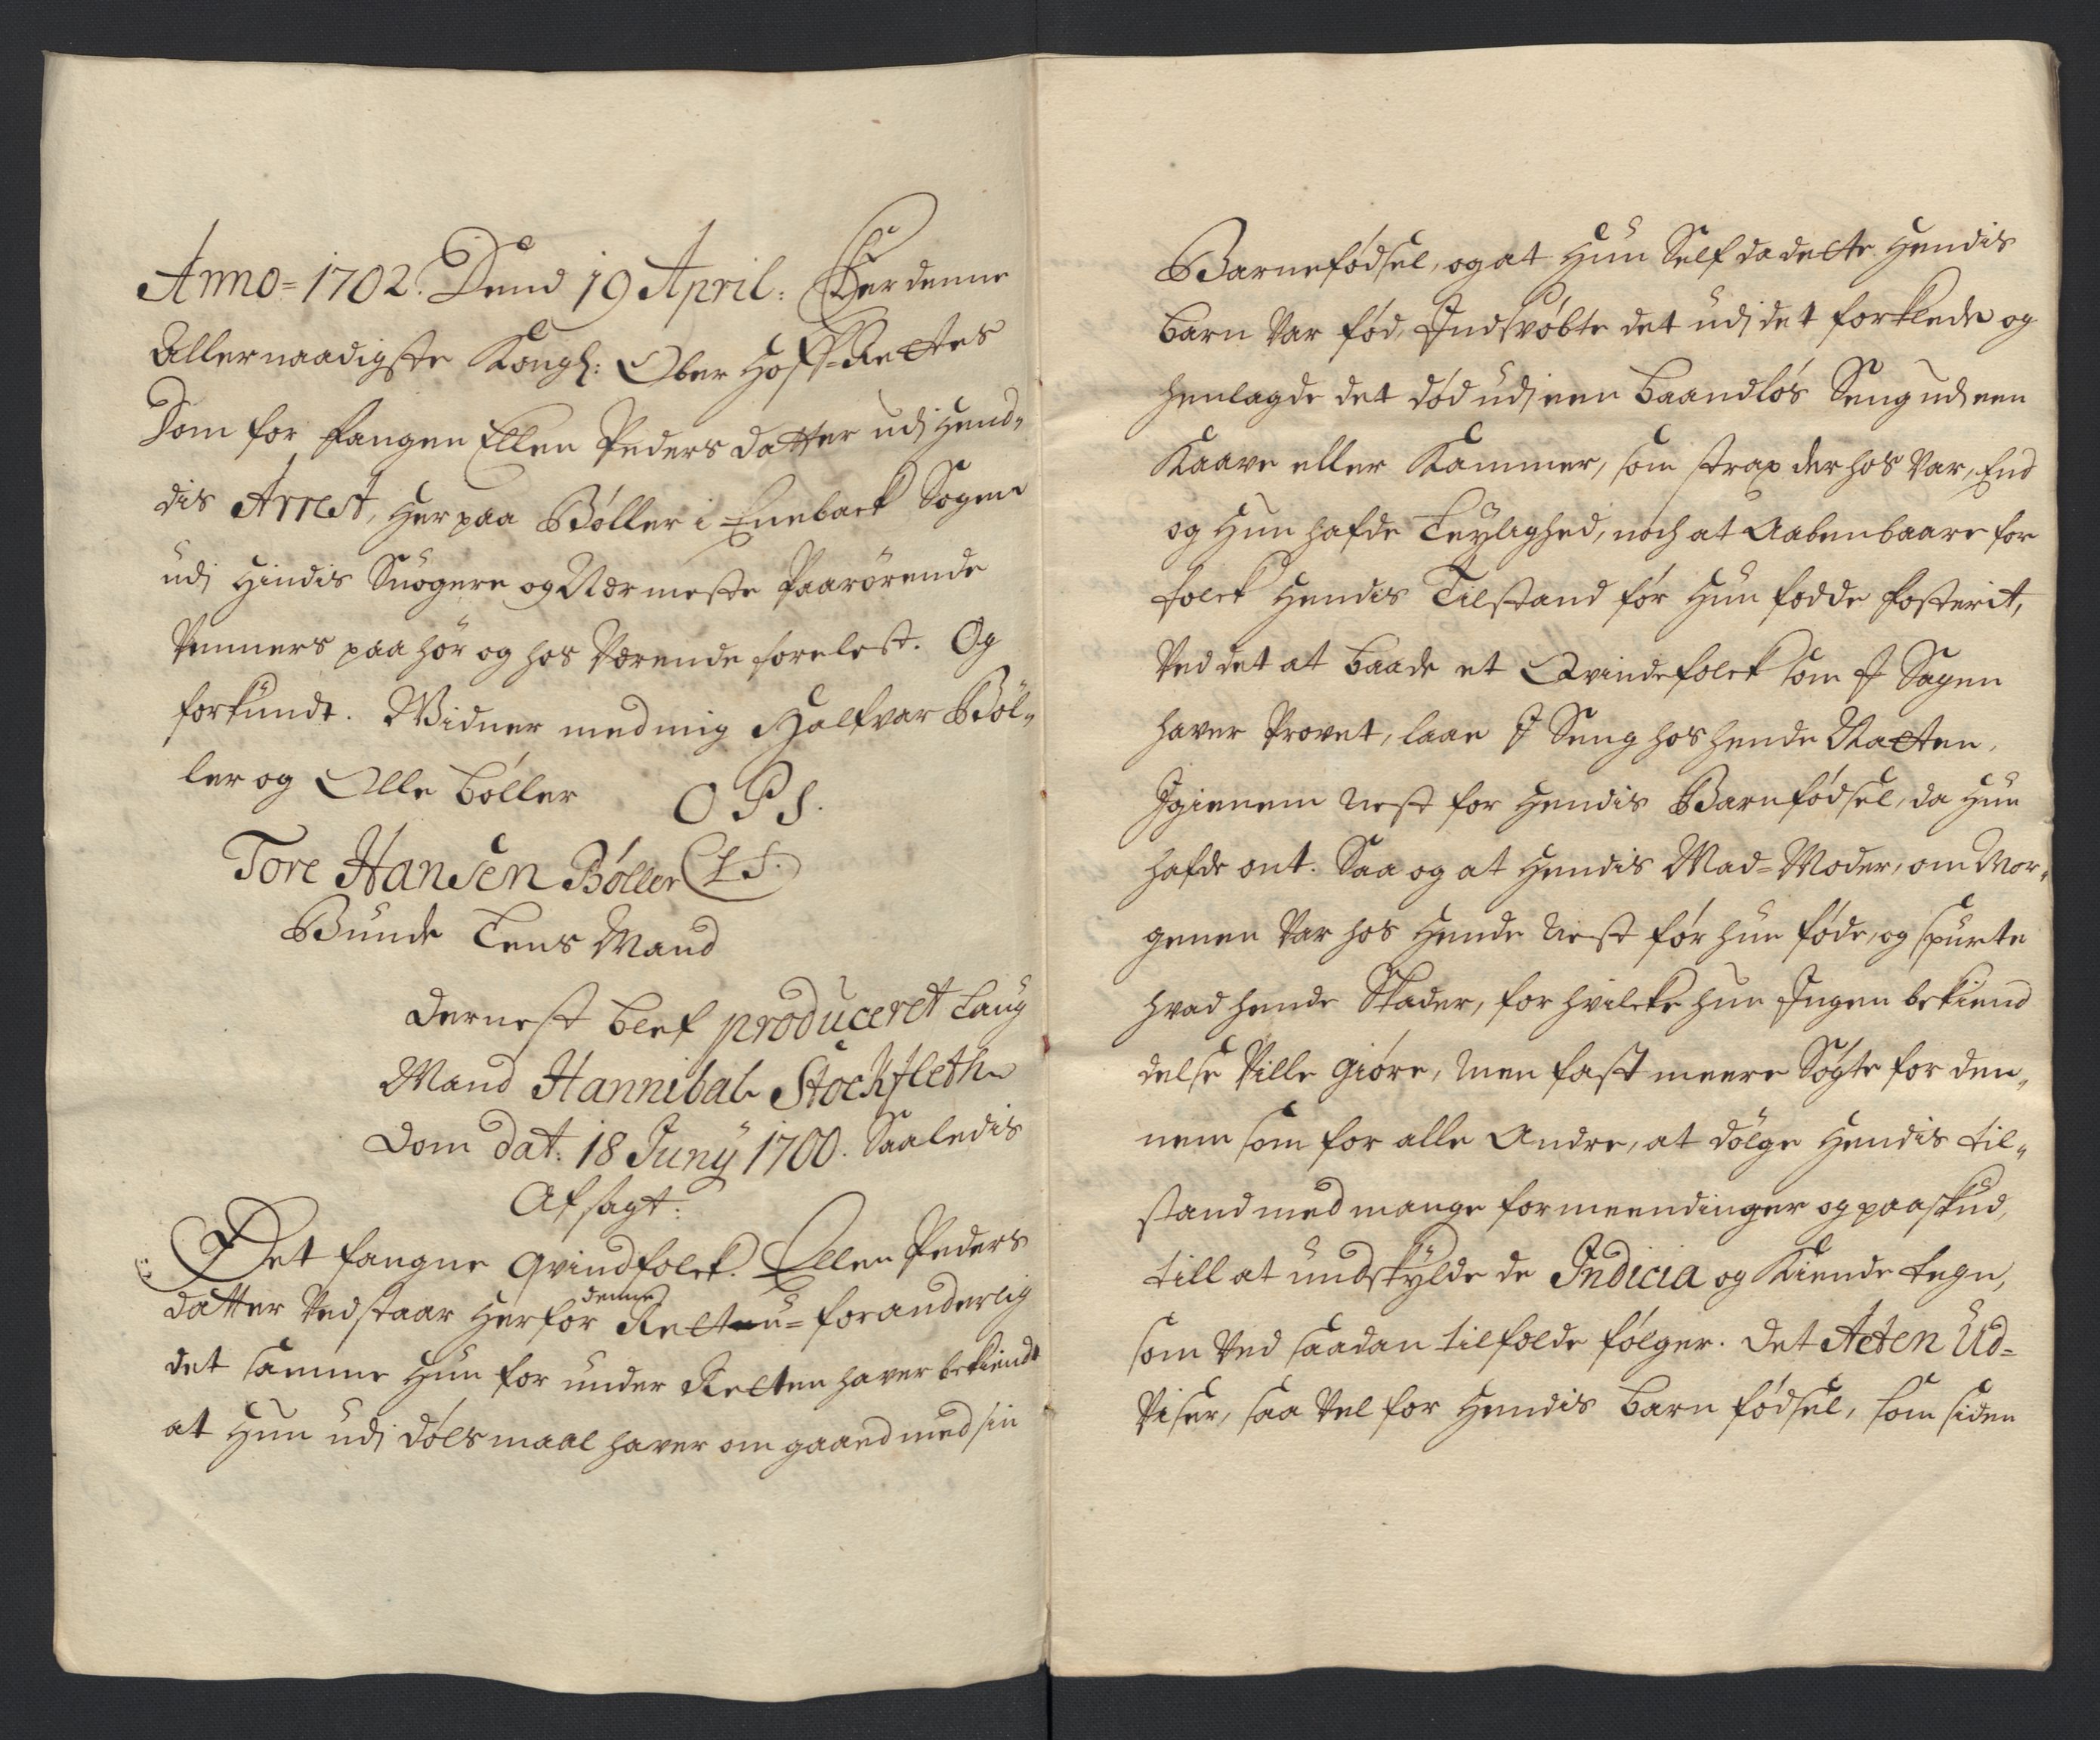 Anno = 1702. Dend 19 April: Er denne
Allernaadigste Kongl: Ober Hoff-Rettes
Dom for fangen Ellen Peders datter udj Hend-
dis Arrest, Her paa Böller i Eneback Sogen
udj Hindis Suogere og Nærmeste Paarörende
Venners paahör og hos værende forelest. Og
forkundt. Widner med mig Halfvar Böl-
ler og Olle Böller O P S.
Tore Hansen Böller (L S.)
Bunde Lens Mand
Dernest blef produceret Laug
Mand Hannibal Stockfleth
Dom dat: 18 Juny 1700. Saaledis
Afsagt:
Det fangne Qvindfolck. Ellen Peders
datter Vedstaar Her for denne Rett u-foranderlig
det samme Hun for under Retten haver bekiendt
at Hun udj dölsmaal haver om gaaed med sin
Barnefödsel, og at Hun Self da dette Hendis
barn Var föd, Indsvöbte det udj det forklede og
henlagde det död udj een baandlös Seng ud een
Kaave eller Kammer, som strax der hos Var, End
og Hun hafde Leylighed, noch at Aabenbaare for
folck Hendis Tilstand för Hun födde fosterit,
Ved det at baade et Qvindefolck som J Sagen
haver Provet, laae J Seng hos hende Natten,
Igienem nest for Hendis Barnfödsel, da Hun
hafde ont. Saa og at Hendis Mad-Moder, om Mor-
genen Var hos Hende nest för hun föde, og spurte
hvad hende Skader, for hvilcke hun Ingen bekiend
delse Ville giöre, Men fast meere Sögte for den-
nem som for alle Andre, at dölge Hendis til-
stand med mange formeendinger og paaskud,
till at undskylde de Indicia og Kiende tegn,
som Ved saadan tilfelde fölger. Det Acten Ud-
Viser, saa Vel for Hendis barn födsel, som siden